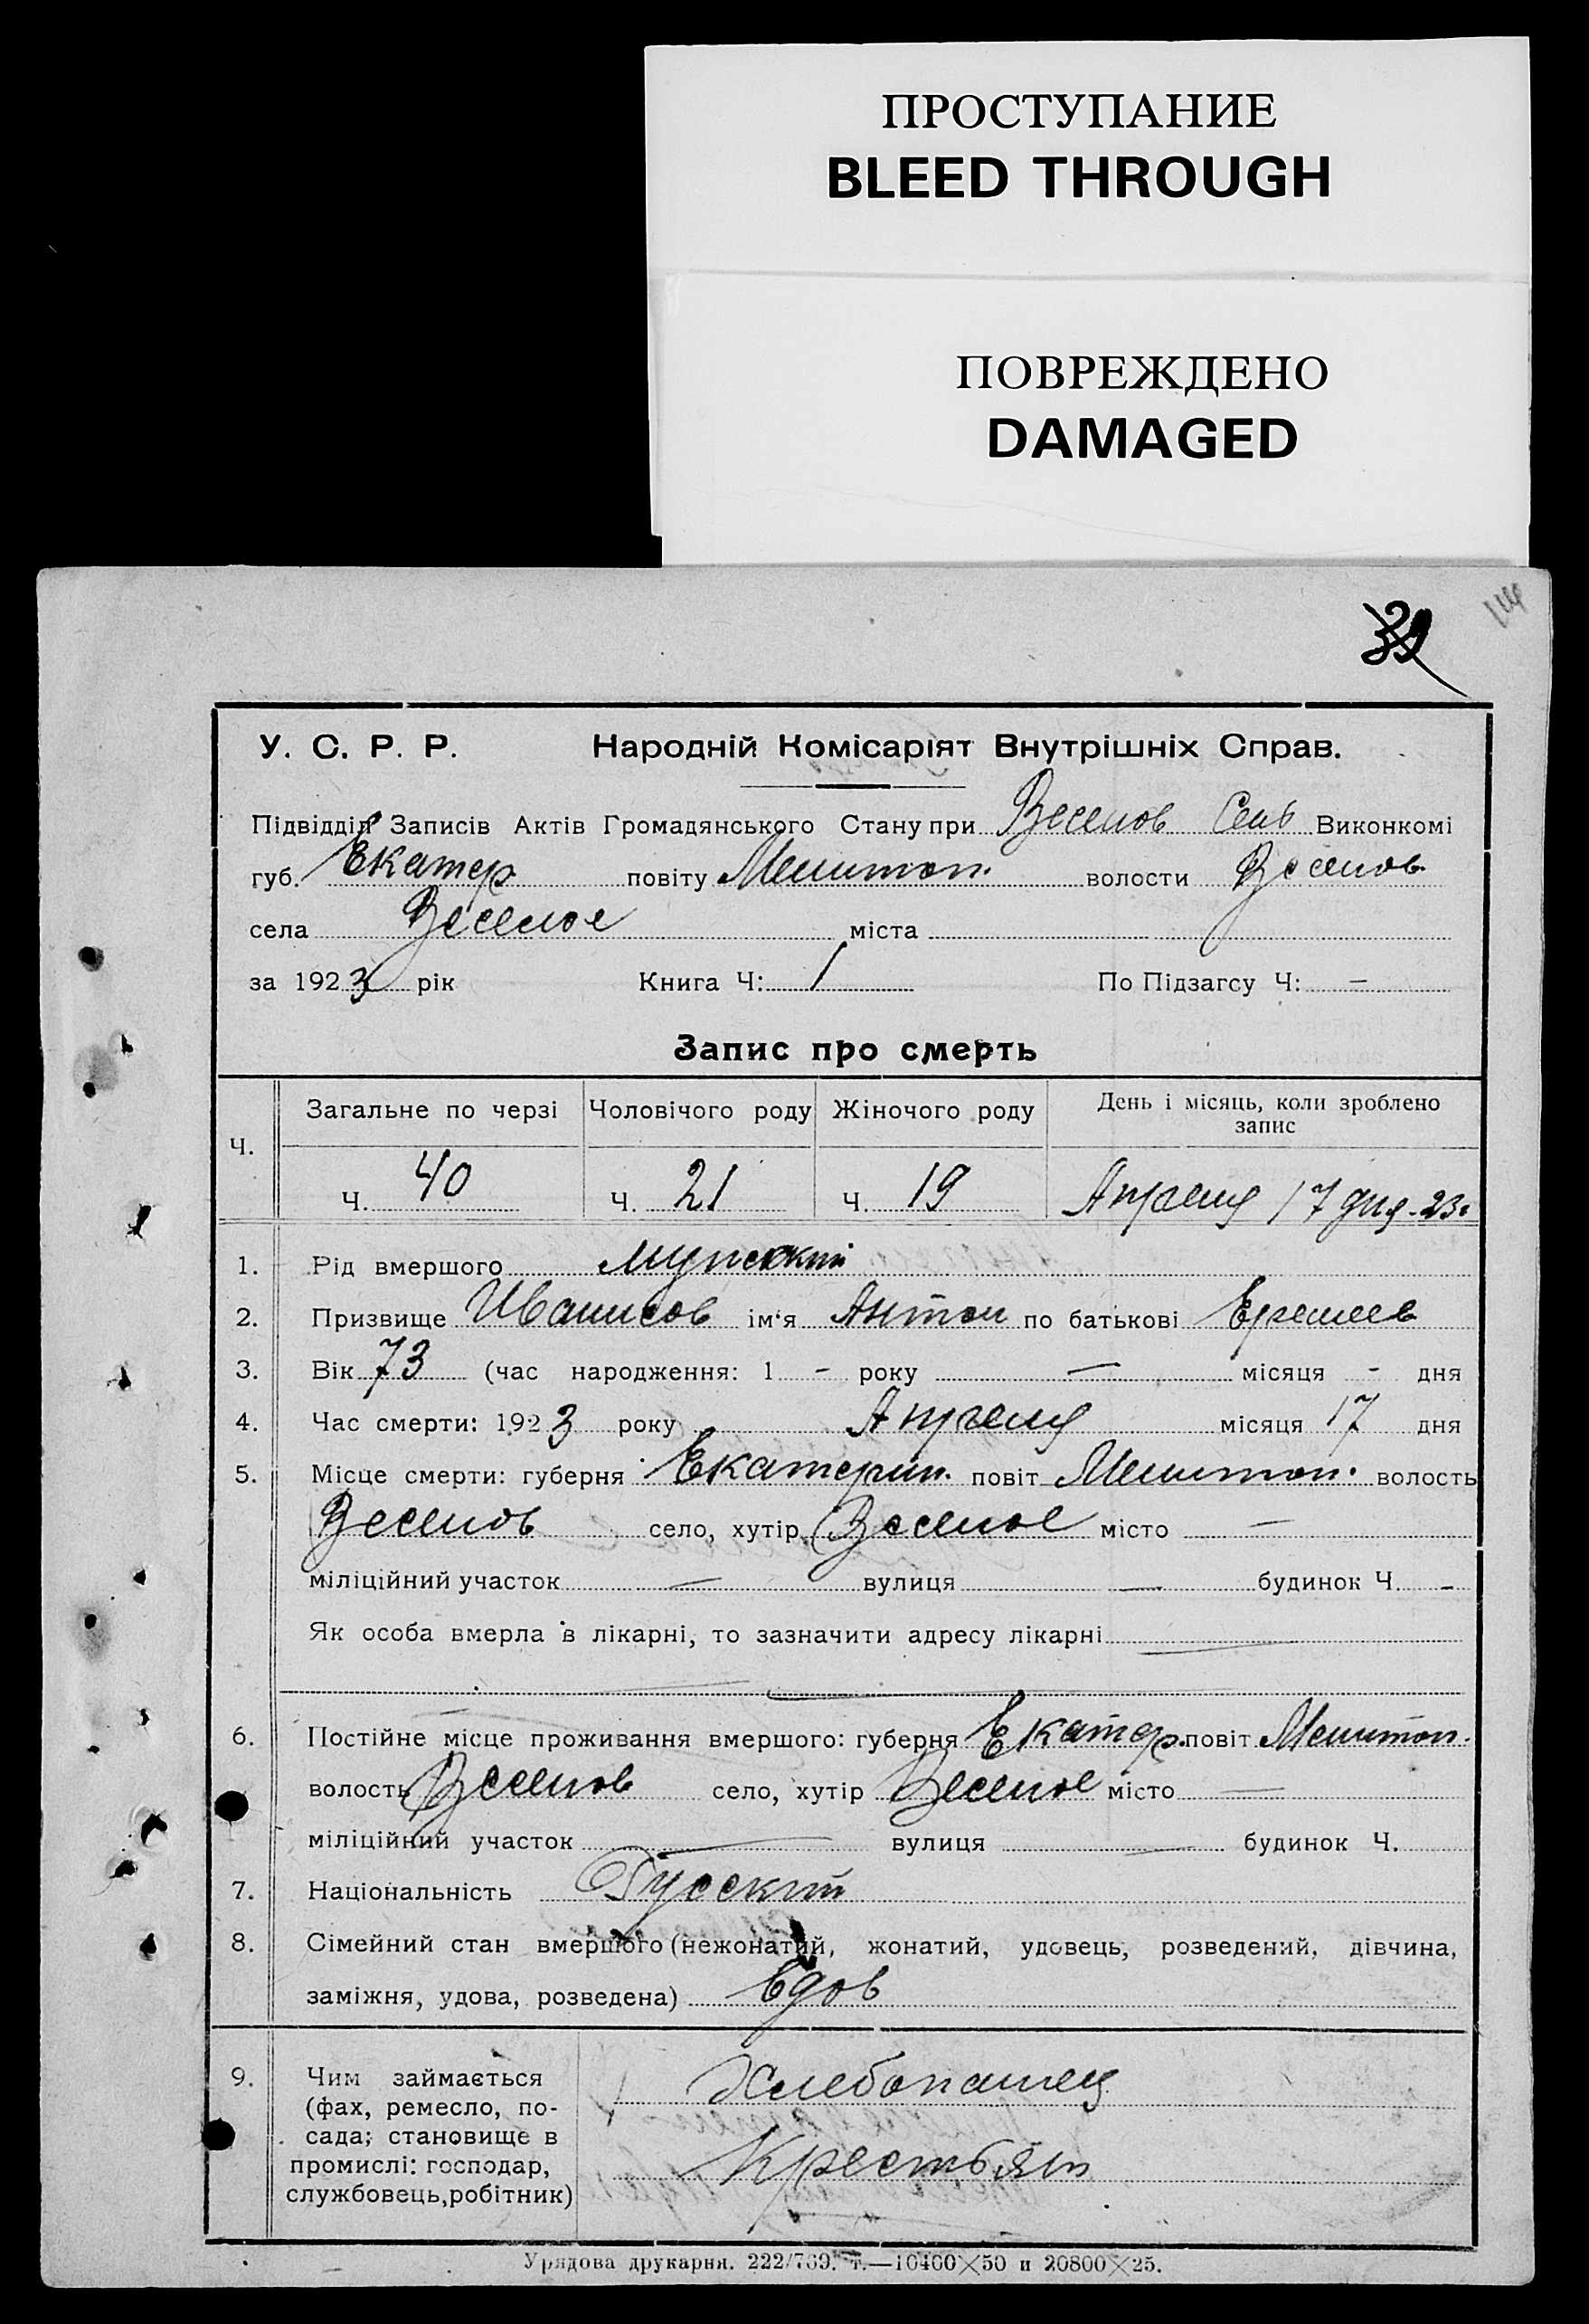 ПРОСТУПАНИЕ
BLEED THROUGH
ПОВРЕЖДЕНО
DAMAGED
У. С. Р. Р. Народній Комісаріят Внутрішніх Справ.
Підвідділ Записів Актів Громадянського Стану при Веселов Сель Виконкомі
губ. Екатер повіту Мелитоп. волости Веселов.
села Веселое міста
за 1923 рік Книга Ч: 1 По Підзагсу Ч: —
Запис про смерть
Ч. Загальне по черзі Чоловічого роду Жіночого роду День і місяць, коли зроблено запис
Ч. 40 Ч. 21 Ч. 19 Апреля 17 дня 23г
1. Рід вмершого Мужской
2. Призвище Иванисов ім'я Антон по батькові
3. Вік 73 (час народження: 1 - року — місяця - дня
4. Час смерти: 1923 року Апреля місяця 17 дня
5. Місце смерти: губерня Екатерин. повіт Мелитоп. волость
Веселов село, хутір Веселое місто —
міліційний участок — вулиця — будинок Ч. -
Як особа вмерла в лікарні, то зазначити адресу лікарні —
6. Постійне місце проживання вмершого: губерня Екатер. повіт Мелитоп.
волость Веселов село, хутір Веселое місто —
міліційний участок — вулиця — будинок Ч.
7. Національність Русский
8. Сімейний стан вмершого (нежонатий, жонатий, удовець, розведений, дівчина,
заміжня, удова, розведена) Вдов
9. Чим займається
(фах, ремесло, по-
сада; становище в
промислі: господар,
службовець, робітник)
Хлебопашец
Крестьян
Урядова друкарня. 222/769. т.—10400×50 и 20800×25.